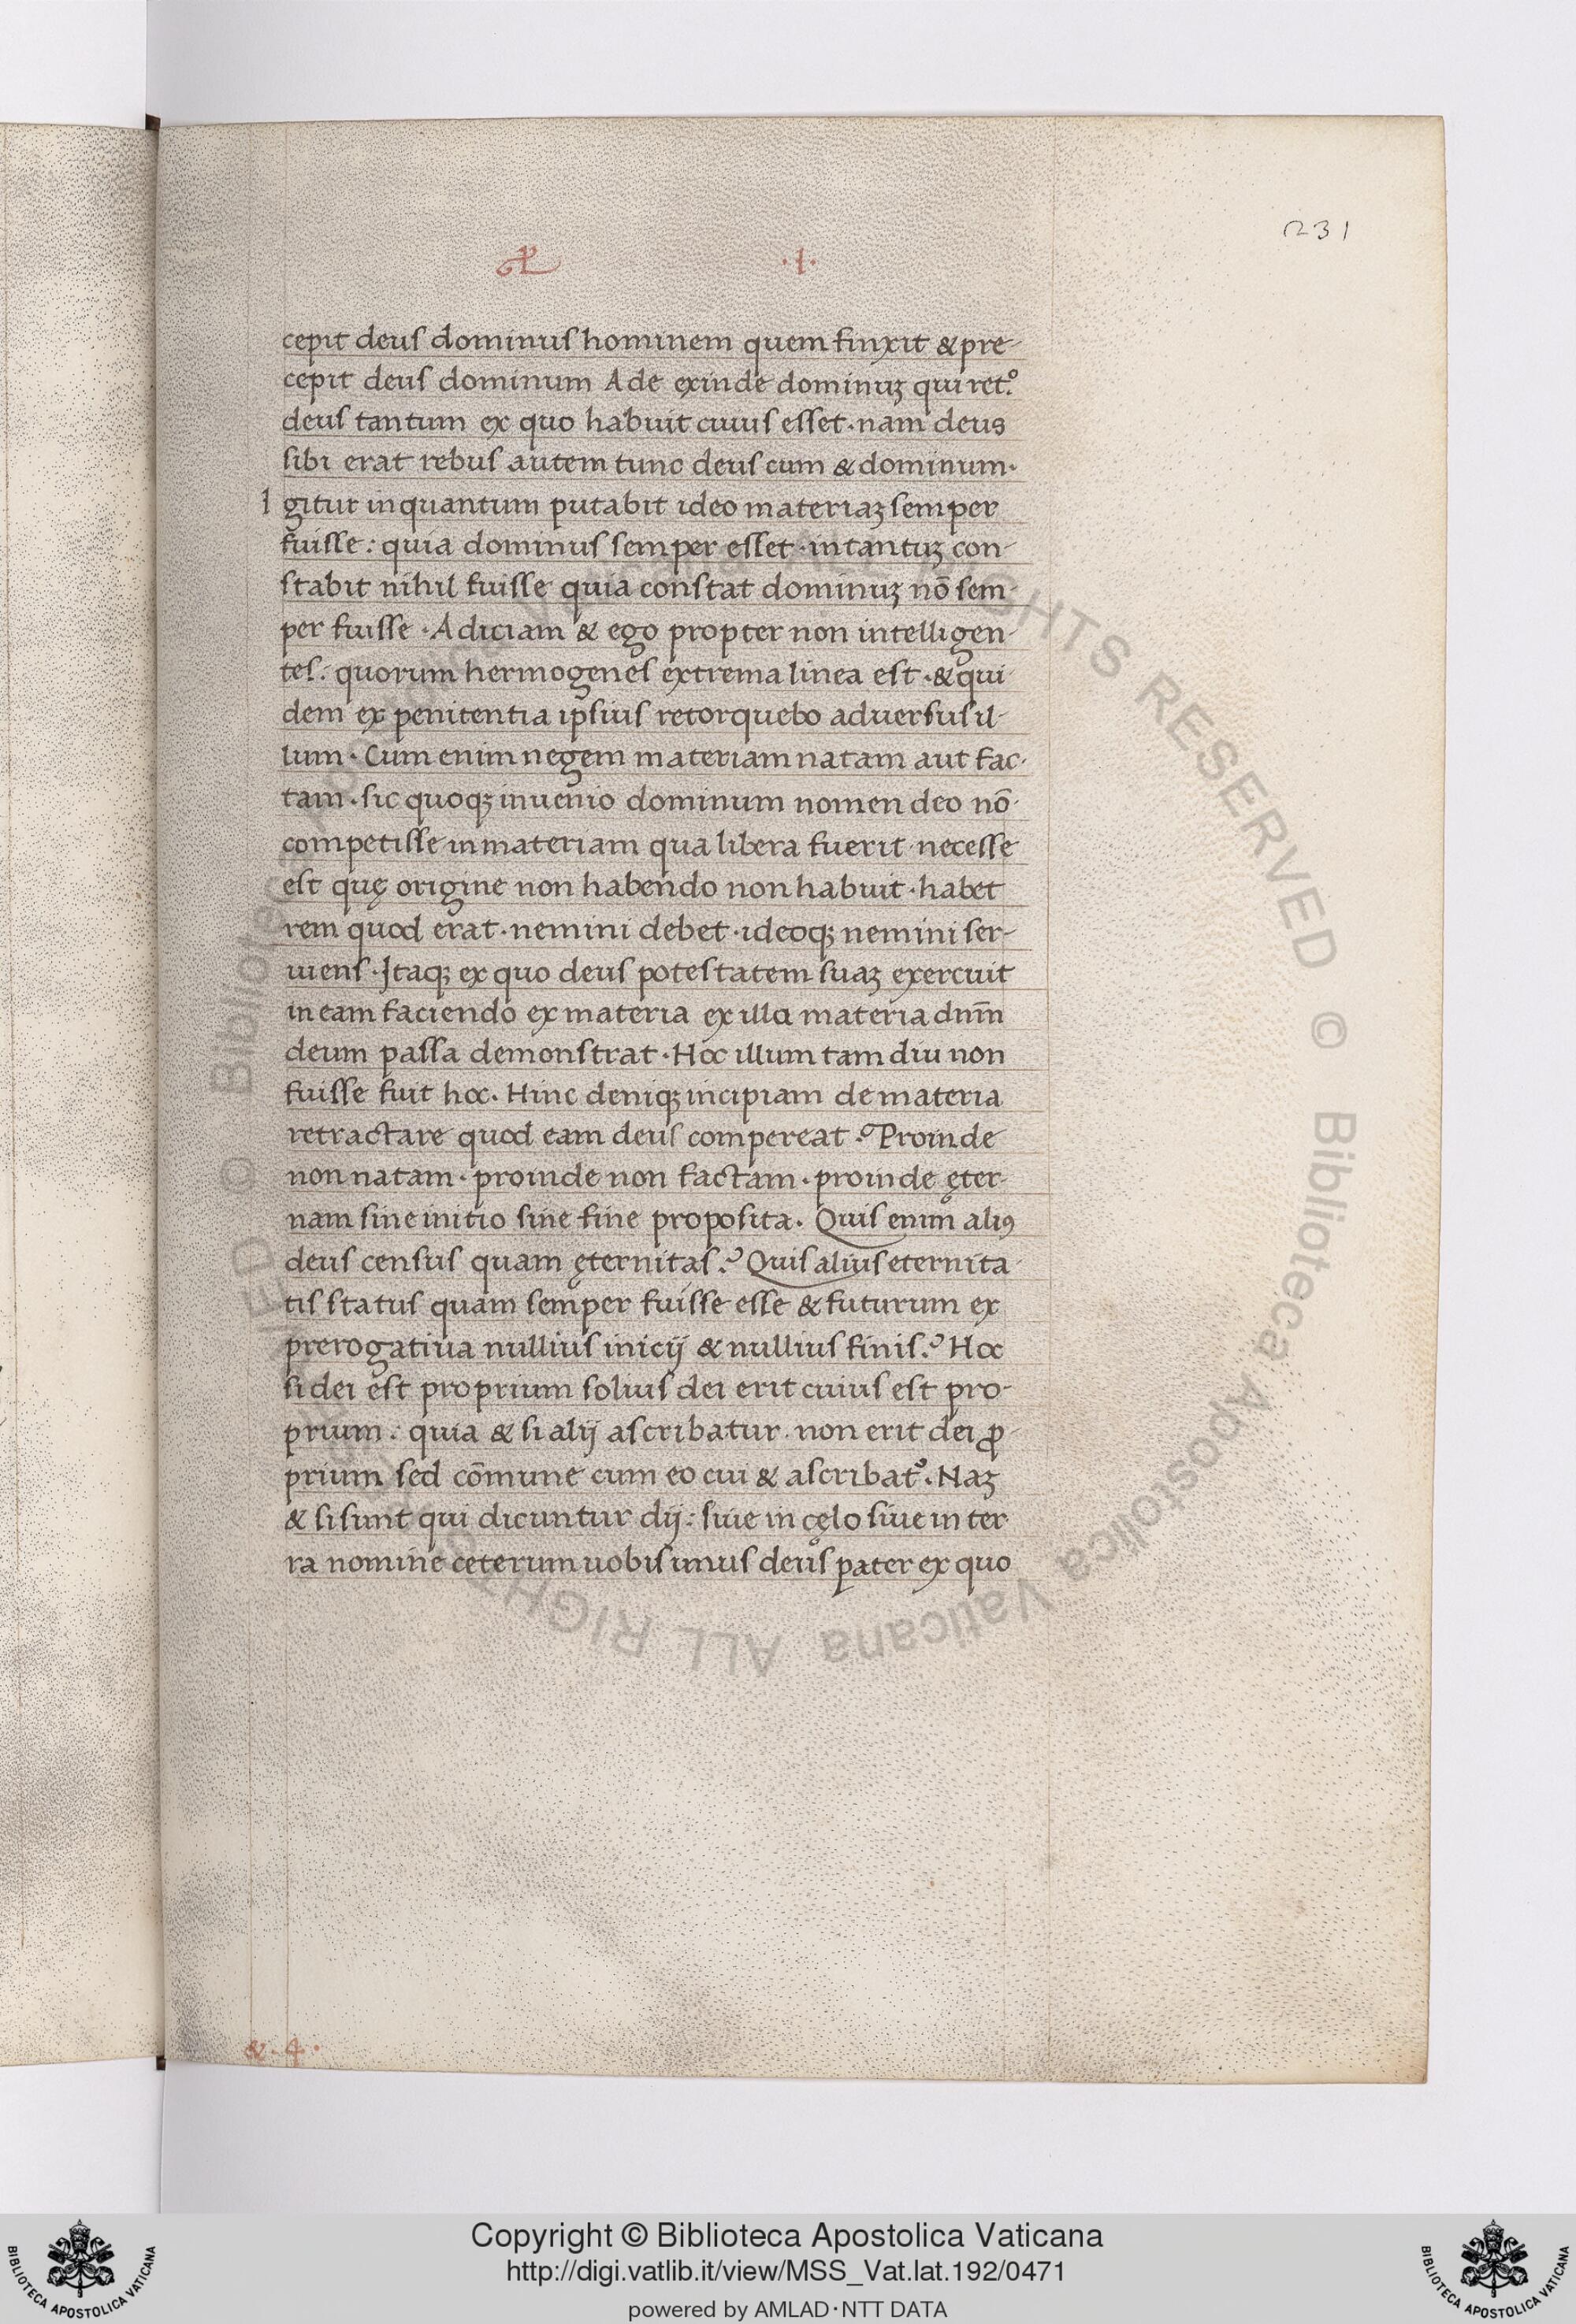 231
·I·
cepit deus dominus hominem quem finxit & pre-
cepit deus dominum Ade exinde dominuʒ qui ret.᷒
deus tantum ex quo habuit cuius esset · nam deus
sibi erat rebus autem tunc deus cum & dominum·
Igitur inquantum putabit ideo materiaʒ semper
fuisse : quia dominus semper esset · intantuʒ con-
stabit nihil fuisse quia constat dominuʒ nō sem-
per fuisse · Adiciam & ego propter non intelligen-
tes. quorum hermogenes extrema linea est · & qui
dem ex penitentia ipsius retorquebo aduersus il-
lum · Cum enim negem materiam natam aut fac-
tam · sic quoqʒ inuenio dominum nomen deo nō-
competisse in materiam qua libera fuerit necesse
est quę origine non habendo non habuit · habet
rem quod erat · nemini debet · ideoqʒ nemini ser-
uiens · Itaqʒ ex quo deus potestatem suaʒ exercuit
in eam faciendo ex materia ex illa materia dnm̄
deum passa demonstrat · Hoc illum tam diu non
fuisse fuit hoc. Hinc deniqʒ incipiam de materia
retractare quod eam deus compereat · Proinde
non natam · proinde non factam · proinde ęter-
nam sine initio sine fine proposita. Quis enim aliꝰ
deus census quam ęternitas? Quis alius eternita-
tis status quam semper fuisse esse & futurum ex
prerogatiua nullius inicij & nullius finis? Hoc
si dei est proprium solius dei erit cuius est pro-
prium : quia & si alij ascribatur · non erit dei ꝓ-
prium sed cōmune cum eo cui & ascribat᷒. Naʒ
& si sunt qui dicuntur dij : siue in cęlo siue in ter
ra nomine ceterum uobis unus deus pater ex quo
&. 4.
© Biblioteca Apostolica Vaticana ALL RIGHTS RESERVED
Copyright © Biblioteca Apostolica Vaticana
http://digi.vatlib.it/view/MSS_Vat.lat.192/0471
powered by AMLAD·NTT DATA
BIBLIOTECA APOSTOLICA VATICANA
BIBLIOTECA APOSTOLICA VATICANA